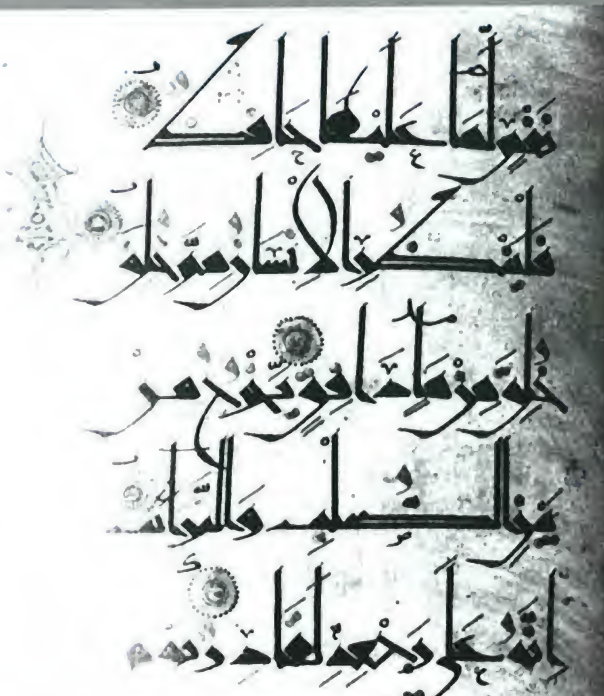 نَفْسٍ لَمَّا عَلَيْهَا حَافِظٌ
فَلْيَنْظُرِ الْإِنْسَانُ مِمَّ خُلِقَ
خُلِقَ مِنْ مَاءٍ دَافِقٍ يَخْرُجُ مِنْ
بَيْنِ الصُّلْبِ وَالتَّرَائِبِ
إِنَّهُ عَلَى رَجْعِهِ لَقَادِرٌ يَوْمَ